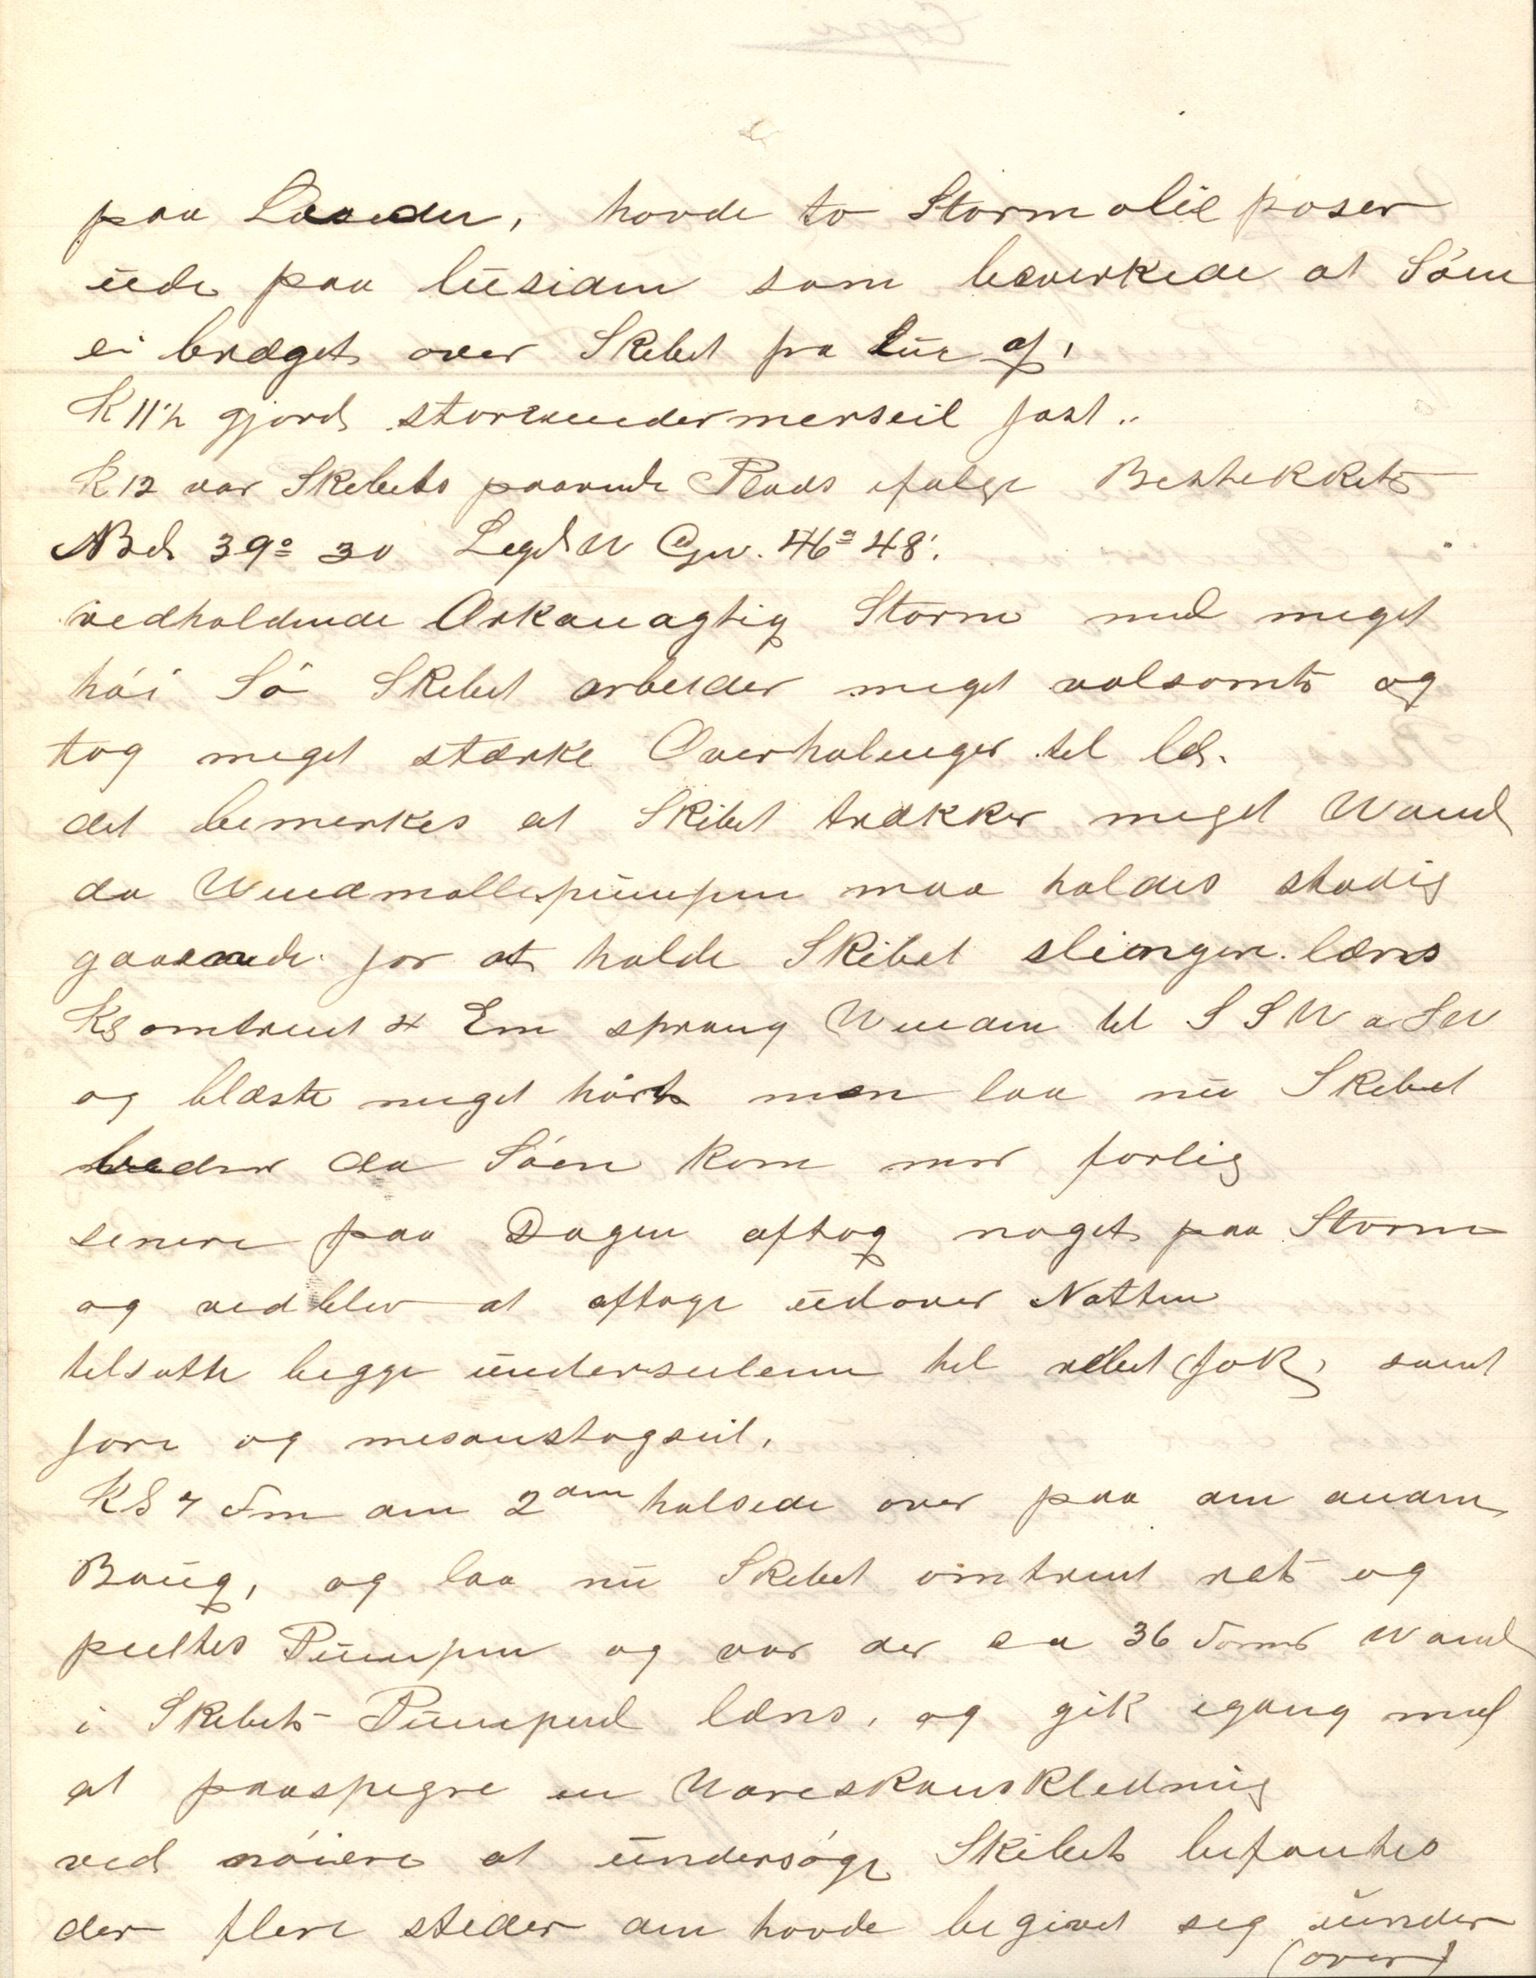 paa Laaeder, havde to Storm olie poser
ude paa lusiden som bevirkede at Söen
ei bræget over Skibet fra Lue af,
K 11½ gjord storeundermerseil fast..
K 12 var Skibets paavende Plads ifølge Bestekkets
NBd 39° 30 Legd W Gw. 46° 48'.
vedholdende Orkanagtig Storm med meget
hói Só Skibet arbeider meget volsomt og
tog meget stærke Overhalinger til læ.
det bemerkes at Skibet trækker meget Wand
da Windmøllepumpen maa holdes stadig
gaaende for at holde Skibet slingere læns
Kl omtrent 4 Em sprang Winden til S S W a SW
og blæste meget hart men laa nu Skibet
beder da Söen kom mer forlig
senere paa Dagen aftog noget paa Storm
og ved blev at aftage udover Natten
tilsatte begge underseilene til rebet fok, samt
fore og mesanstagseil.
Kl 7 Fm den 2den halsede over paa den anden
Boug, og laa nu Skibet omtrent ret og
peiltes Pumpen og var der ca 36 Tomer Wand
i Skibet Pumped læns, og gik igang med
at paaspigre en Wareskandsklædning
ved nóiere at undersóge Skibet befantes
der flere steder den havde begivet seg under
(over)